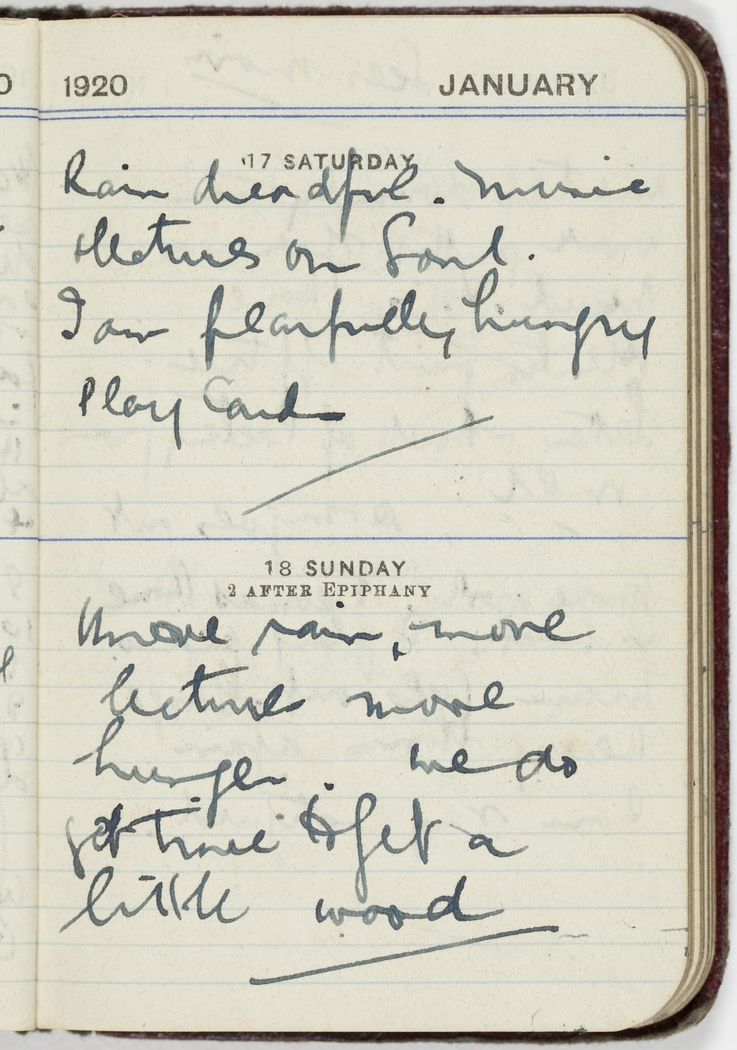 1920 JANUARY
17 SATURDAY
Rain dreadful. Music
& lectures on Soul.
I am fearfully hungry
Play Cards
18 SUNDAY
2 AFTER EPIPHANY
More rain, more
lecture more
hunger. We do
get time to get a
little wood